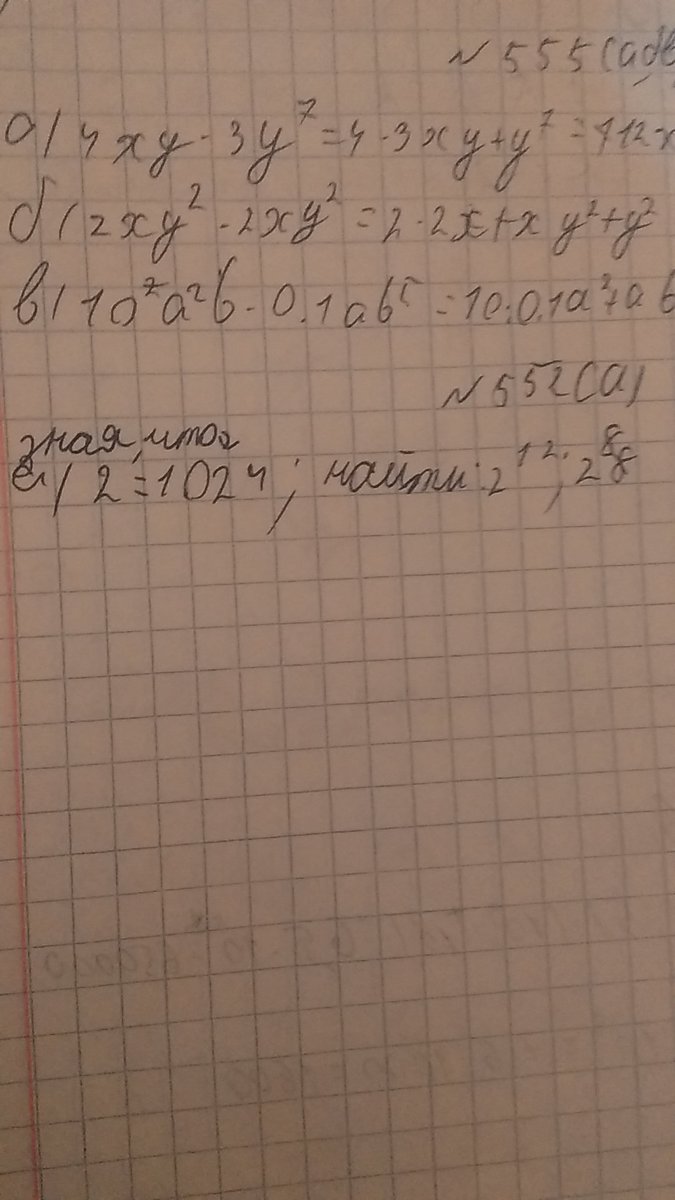 N 555(а,б
а) 4xy · 3y⁷ = 4 · 3xy + y⁷ = 112x
б) 2xy² · 2xy² = 2 · 2x + x y² + y²
в) 10⁷a²b · 0.1ab⁵ = 10 · 0.1a² + ab
N 552(а)
зная, что
а) 2 = 1024; найти: 2¹²; 2⁸8